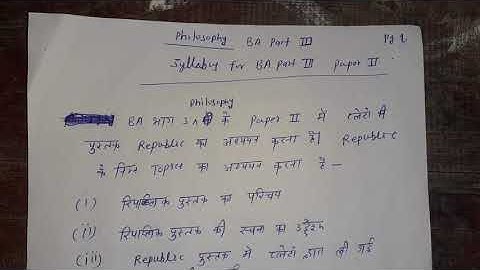 Philosophy BA Part III Pg 1
Syllabus for BA Part III Paper II
Philosophy
BA भाग 3 के Paper II में प्लेटो की
पुस्तक Republic का अध्ययन करना है। Republic
के निम्न Topics का अध्ययन करना है —
(i) रिपब्लिक पुस्तक का परिचय
(ii) रिपब्लिक पुस्तक की रचना का उद्देश्य
(iii) Republic पुस्तक में प्लेटो द्वारा दी गई